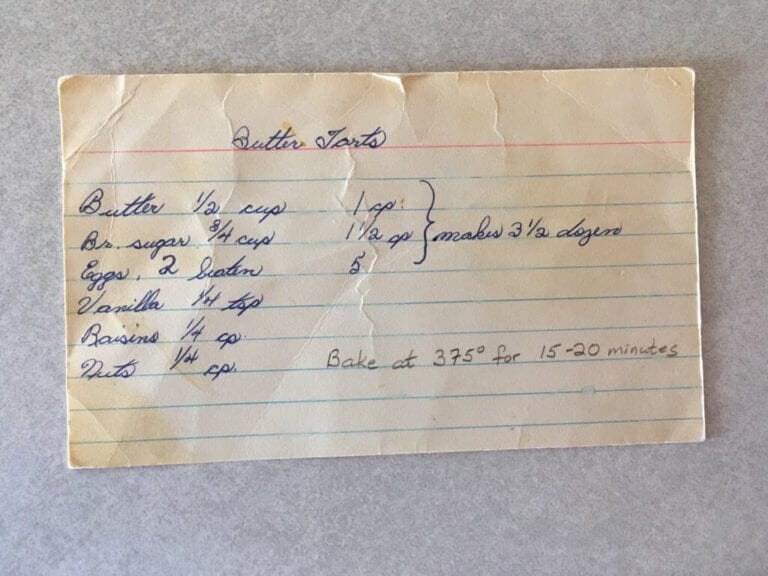 Butter Tarts
Butter 1/2 cup 1 cp.
Br. sugar 3/4 cup 1 1/2 cp } makes 3 1/2 dozen
Eggs, 2 beaten 5
Vanilla 1/4 tsp
Raisins 1/4 cp.
Nuts 1/4 cp.
Bake at 375° for 15-20 minutes